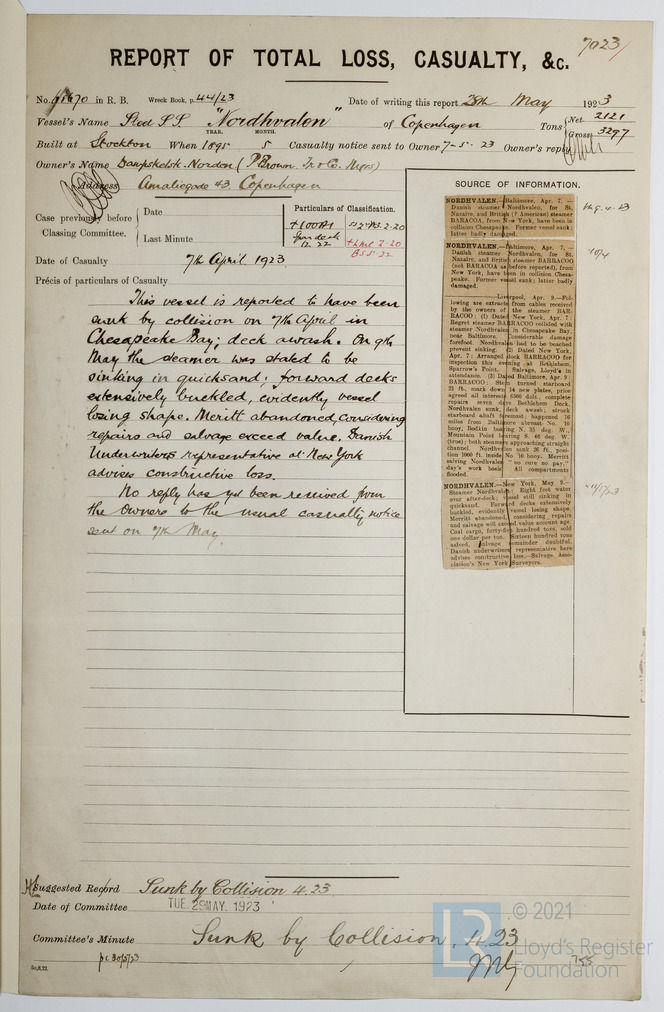 7023
REPORT OF TOTAL LOSS, CASUALTY, &c.
No. 41670 in R. B. Wreck Book, p. 44/23 Date of writing this report 28th May 1923
Vessel's Name Steel S.S. "Nordhvalen" of Copenhagen Tons Net 2121 Gross 3297
YEAR. MONTH.
Built at Stockton When 1895 5 Casualty notice sent to Owner 7-5-23 Owner's reply
Owner's Name Dampskibsk. Nordon (P Brown. Jr & Co. Mgrs)
Address Amaliegade 43. Copenhagen
Case previously before Classing Committee.
Date
Last Minute
Particulars of Classification.
+100A1
Spar deck
12.22
+LMC 2-20
BS 5-22
Date of Casualty 7th April 1923
Précis of particulars of Casualty
This vessel is reported to have been
sunk by collision on 7th April in
Chesapeake Bay; deck awash. On 9th
May the steamer was stated to be
sinking in quicksand; forward decks
extensively buckled, evidently vessel
losing shape. Meritt abandoned, considering
repairs and salvage exceed value. Danish
Underwriters representative at New York
advises constructive loss.
No reply has yet been received from
the Owners to the usual casualty notice
sent on 7th May.
SOURCE OF INFORMATION.
NORDHVALEN.—Baltimore, Apr. 7.—
Danish steamer Nordhvalen, for St.
Nazaire, and British (? American) steamer
BARACOA, from New York, have been in
collision Chesapeake. Former vessel sunk;
latter badly damaged.
NORDHVALEN.—Baltimore, Apr. 7.—
Danish steamer Nordhvalen, for St.
Nazaire, and British steamer BARRACOO
(not BARACOA as before reported), from
New York, have been in collision Chesa-
peake. Former vessel sunk; latter badly
damaged.
10/4
Liverpool, Apr. 9.—Fol-
lowing are extracts from cables received
by the owners of the steamer BAR-
RACOO: (1) Dated New York, Apr. 7:
Regret steamer BARRACOO collided with
steamer Nordhvalen in Chesapeake Bay,
near Baltimore. Considerable damage
forefoot. Nordhvalen had to be beached
prevent sinking. (2) Dated New York,
Apr. 7: Arranged dock BARRACOO for
inspection this evening at Bethlehem,
Sparrow's Point. Salvage, Lloyd's in
attendance. (3) Dated Baltimore, Apr. 9:
BARRACOO: Stem turned starboard
23 ft. mark down 14 new plates, price
agreed all interests 6500 dols., complete
repairs seven days Bethlehem Dock.
Nordhvalen sunk, deck awash; struck
starboard abaft foremast; happened 16
miles from Baltimore abreast No. 16
buoy, Bodkin bearing N. 35 deg. W.,
Mountain Point bearing S. 46 deg. W.
(true); both steamers approaching straight
channel. Nordhvalen sunk 26 ft., posi-
tion 1000 ft. inside No. 16 buoy. Merritt
salving Nordhvalen "no cure no pay,"
day's work basis. All compartments
flooded.
NORDHVALEN.—New York, May 9.—
Steamer Nordhvalen: Eight feet water
over after-deck; vessel still sinking in
quicksand. Forward decks extensively
buckled, evidently vessel losing shape.
Merritt abandoned, considering repairs
and salvage will exceed value account age.
Coal cargo, forty-five hundred tons, sold
one dollar per ton. Sixteen hundred tons
salved, salvage remainder doubtful.
Danish underwriters representative here
advises constructive loss.—Salvage Asso-
ciation's New York Surveyors.
Suggested Record Sunk by Collision 4.23
Date of Committee TUE. 29 MAY. 1923
Committee's Minute Sunk by Collision. 4.23
pc 30/5/23
755
© 2021
Lloyd's Register
Foundation